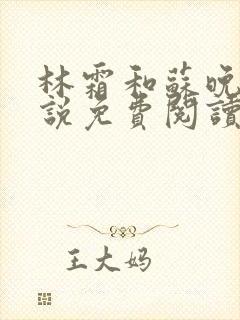 林霜和蘇晚
說免費閱讀
王大妈